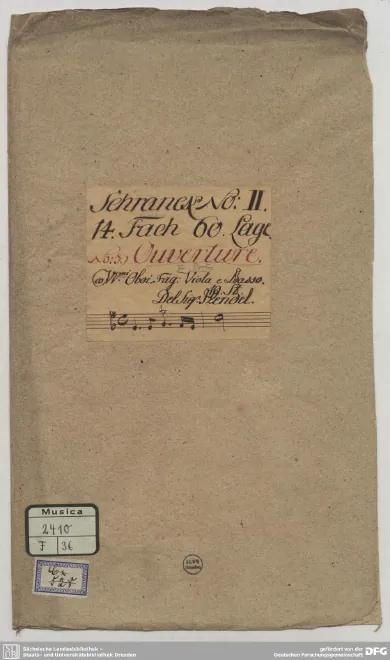 Schranck No: II.
14. Fach 60. Lage
No: 3.) Ouverture.
co VVni Oboi. Fag. Viola e Basso.
Del Sigr. Hendel.
Musica
2410
F 36
Sächsische Landesbibliothek –
Staats- und Universitätsbibliothek Dresden
gefördert von der
Deutschen Forschungsgemeinschaft
DFG